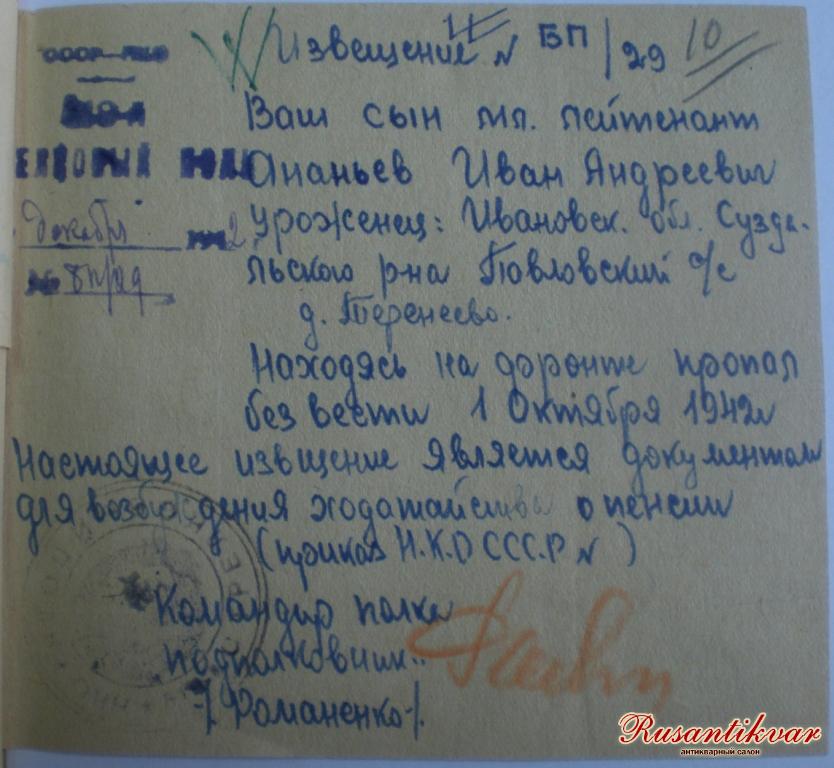 СССР—НКО
Извещение № БП/29 10
Ваш сын мл. лейтенант
Ананьев Иван Андреевич
декабря 2
№ БП/29
уроженец: Ивановск. обл. Сузда-
льского р-на Павловский с/с
д. Теренеево.
Находясь на фронте пропал
без вести 1 Октября 1942 г
Настоящее извщение является документом
для возбуждения ходатайства о пенсии
(приказ Н.К.О СССР № )
Командир полка
подполковник..
-/Романенко-/.
Rusantikvar
антикварный салон